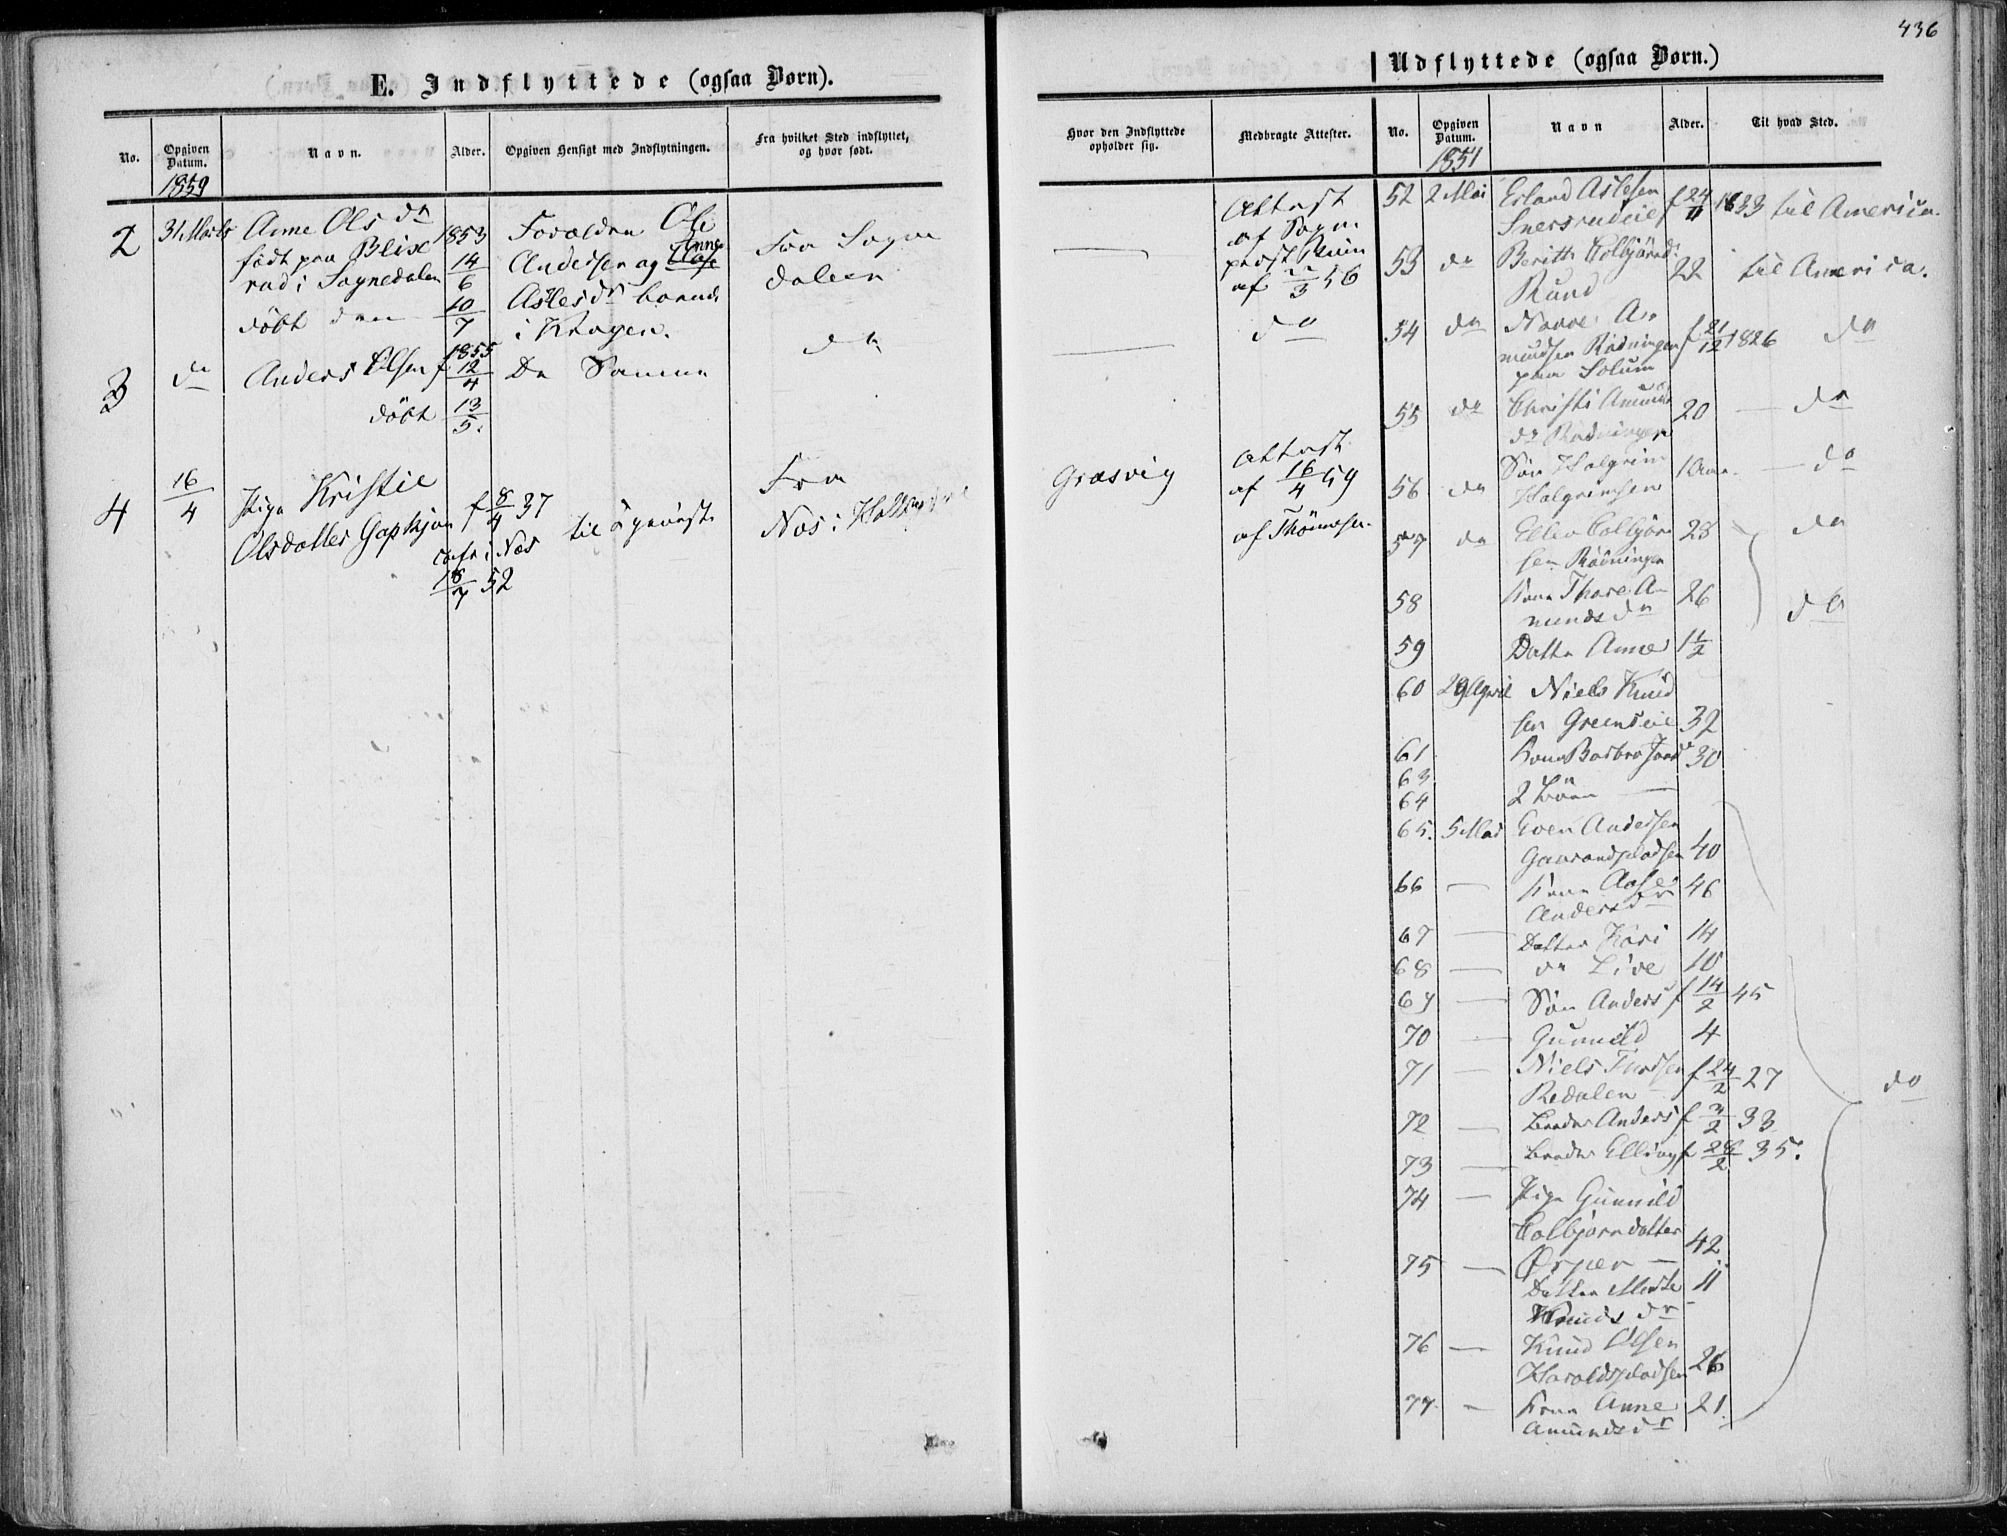 436
E. Indflyttede (ogsaa Børn).
No.
Opgiven Datum.
Navn.
Alder.
Opgiven Hensigt med Indflytningen.
Fra hvilket Sted indflyttet, og hvor født.
1859
2 31 Marts Anne Ols dr 1853 Forældre Ole
født paa Blixe 14/6 Andersen og Aase Anne Fra Sogne
rud i Sognedalen Aslesdr boende dalen
døbt den 10/7 i Kragen.
3 do Anders Olsen f 1855 12/4 De Samme do
døbt 13/5.
4 16/4 Pige Kristie f 8/4 37 Fra
Olsdatter til Nes i
conf i Næs
18/7 52
Udflyttede (ogsaa Børn.)
Hvor den Indflyttede opholder sig.
Medbragte Attester.
No.
Opgiven Datum.
Navn
Alder.
Til hvad Sted.
1851
Attest
af Sogne
prost
af 22/3 56
do
Græsvig Attest
af 16/4 59
af Thönnesen
52 2 Mai Erland Aslesen
Snersrudeie f 24/11 1833 til America.
53 do Berith Colbjörnsd
Rund 22 til America.
54 do A
mundsen Rødningen f 21/12 1826 do
paa Solum
55 do Christi Amunds
dr Rødningen 20 — do
56 do Søn Halgrim
Halgrimsen 1 Aar — do
57 do Ellev Colbjørn
sen Rødningen 28 do
58 Kone Thore A
munds dr 26 do
59 Datter Anne 1 1/2
60 29 April Niels Knud
sen Greenseie 32
61 Kone Barbro 30
63
64 2 Børn —
65. 5 Mai Even Andersen
Gavrandspladsen 40
66 — Kone Aase
Andersdr 46
67 — Datter Kari 14
68 — do Live 10
69 — Søn Anders f 14/2 45
70 — Gunnild 4
71 — Niels Turdsen f 24/2 27
Redalen
do
72 — Broder Anders f 3/2 33
73 — Broder Elling f 28/2 35.
74 — Pige Gunnild
Colbjørndatter 42
75 — Ørpen —
Datter Marte 11
Knuds dr
76 — Knud Olsen
Haraldspladsen 26
77. — Kone Anne 21.
Amundsdr